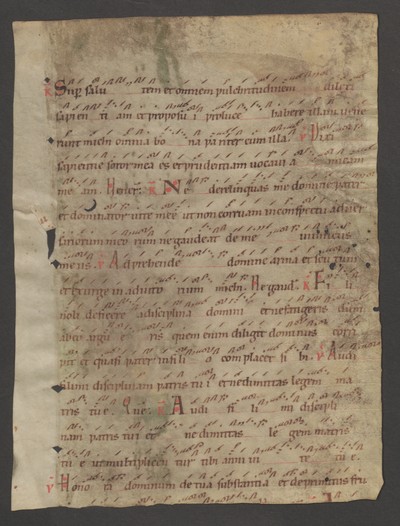 Sup salu tem et omnem pulchritudinem dilexi
sapien ti am et proposui pro luce habere illam vene
runt michi omnia bo na pariter cum illa. V Dixi
sapientie soror mea es et prudentiam vocavi a micam
me am. Haber. R Ne derelinquas me domine pater
et dominator vite mee ut non corruam in conspectu adver
sariorum meo rum ne gaudeat de me inimicus
meus. V Apprehende domine arma et scu tum
et exurge in adiuto rium michi. Ne gaud. R Fi li
noli deficere a disciplina domini et ne fatigeris dum
ab eo argu e ris quem enim diligit dominus corri
pit et quasi pater in fili o com placet si bi. V Audi
fili mi disciplinam patris tu i et ne dimittas legem ma
tris tu e. Que. R Audi fi li mi discipli
nam patris tui et ne dimittas le gem matris
tu e ut multiplicen tur tibi anni vi te tu e.
V Hono ra dominum de tua substantia et de primitiis fru